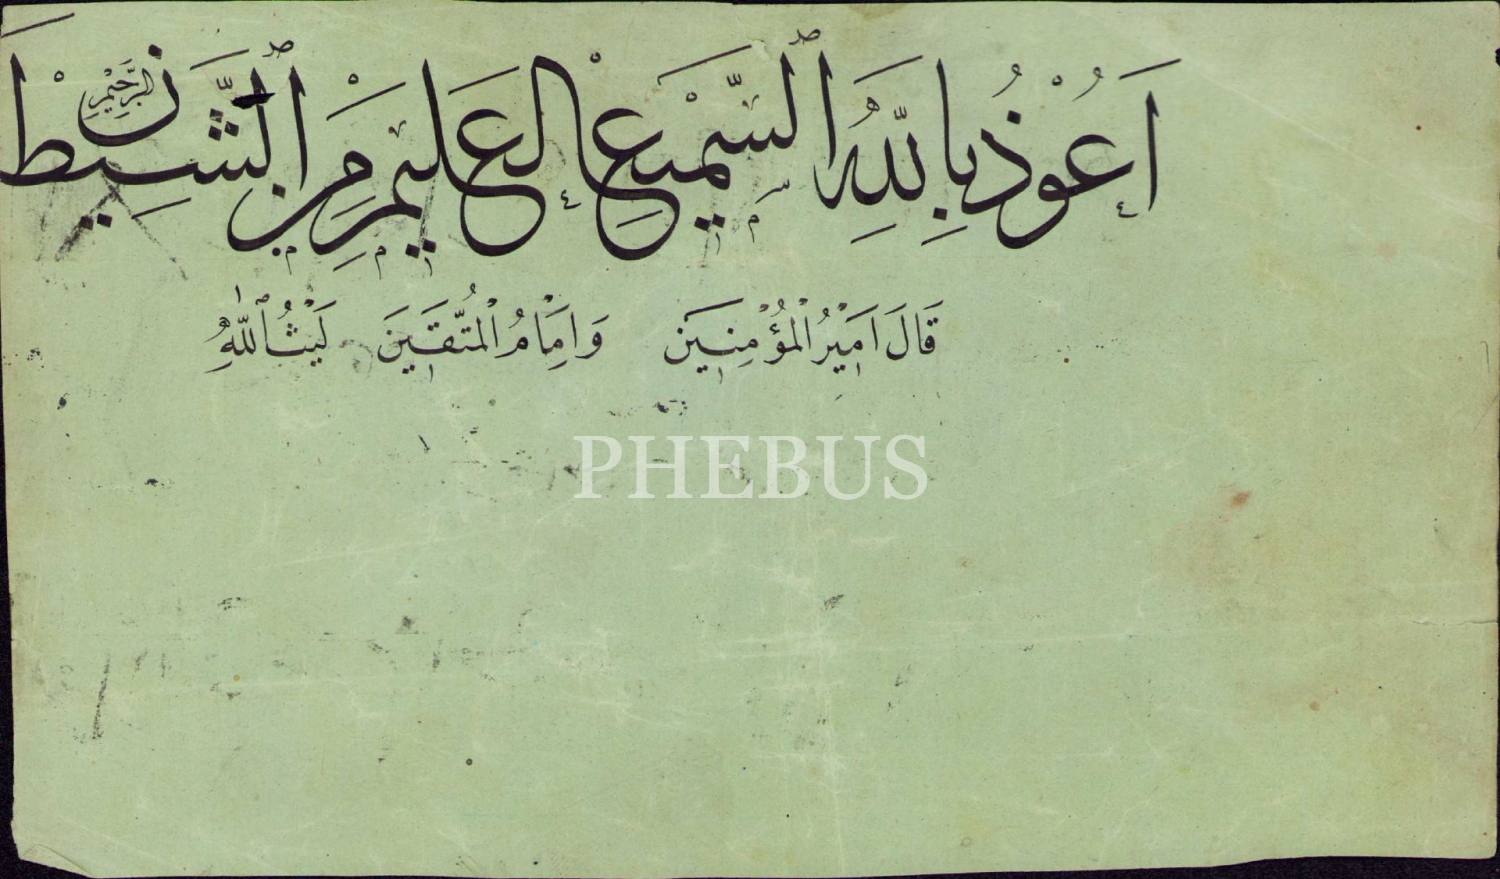 اَعُوْذُ بِاللّٰهِ السَّمِيْعِ الْعَلِيْمِ مِنَ الشَّيْطٰنِ الرَّجِيْمِ
قَالَ اَمِيْرُ الْمُؤْمِنِيْنَ وَاِمَامُ الْمُتَّقِيْنَ لَيْثُ اللّٰهِ
PHEBUS